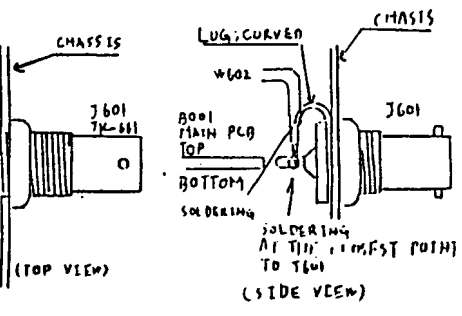 CHASSIS
J601
JK-661
(TOP VIEW)
LUG;CURVED
W602
B001
MAIN PCB
TOP
BOTTOM
SOLDERING
CHASIS
J601
SOLDERING
AT THE POINT
TO J601
(SIDE VIEW)